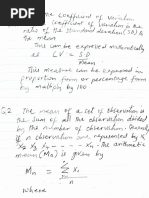 The coefficient of variation
coefficient of variation is the
ratio of the standard deviation (SD) to
the mean
This can be expressed mathematically
as CV = SD
mean
This measure can be expressed in
proportion form or percentage form
by multiply by 100
Q2 The mean of a set of observation is
the sum of all the observation divided
by the number of observation.
if n observation are represented by X1
X2 X3 the arithmetic
mean (Mn) is given by
Mn = Σ Xi
n
where